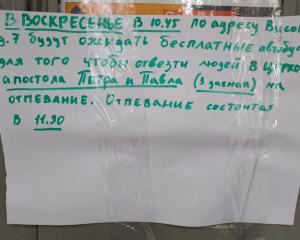 В ВОСКРЕСЕНЬЕ В 10.45 ПО АДРЕСУ
д.7 БУДУТ ОЖИДАТЬ БЕСПЛАТНЫЕ
ДЛЯ ТОГО ЧТОБЫ ОТВЕЗТИ ЛЮДЕЙ В
АПОСТОЛА ПЕТРА И ПАВЛА НА
ОТПЕВАНИЕ. ОТПЕВАНИЕ СОСТОИТСЯ
В 11.30